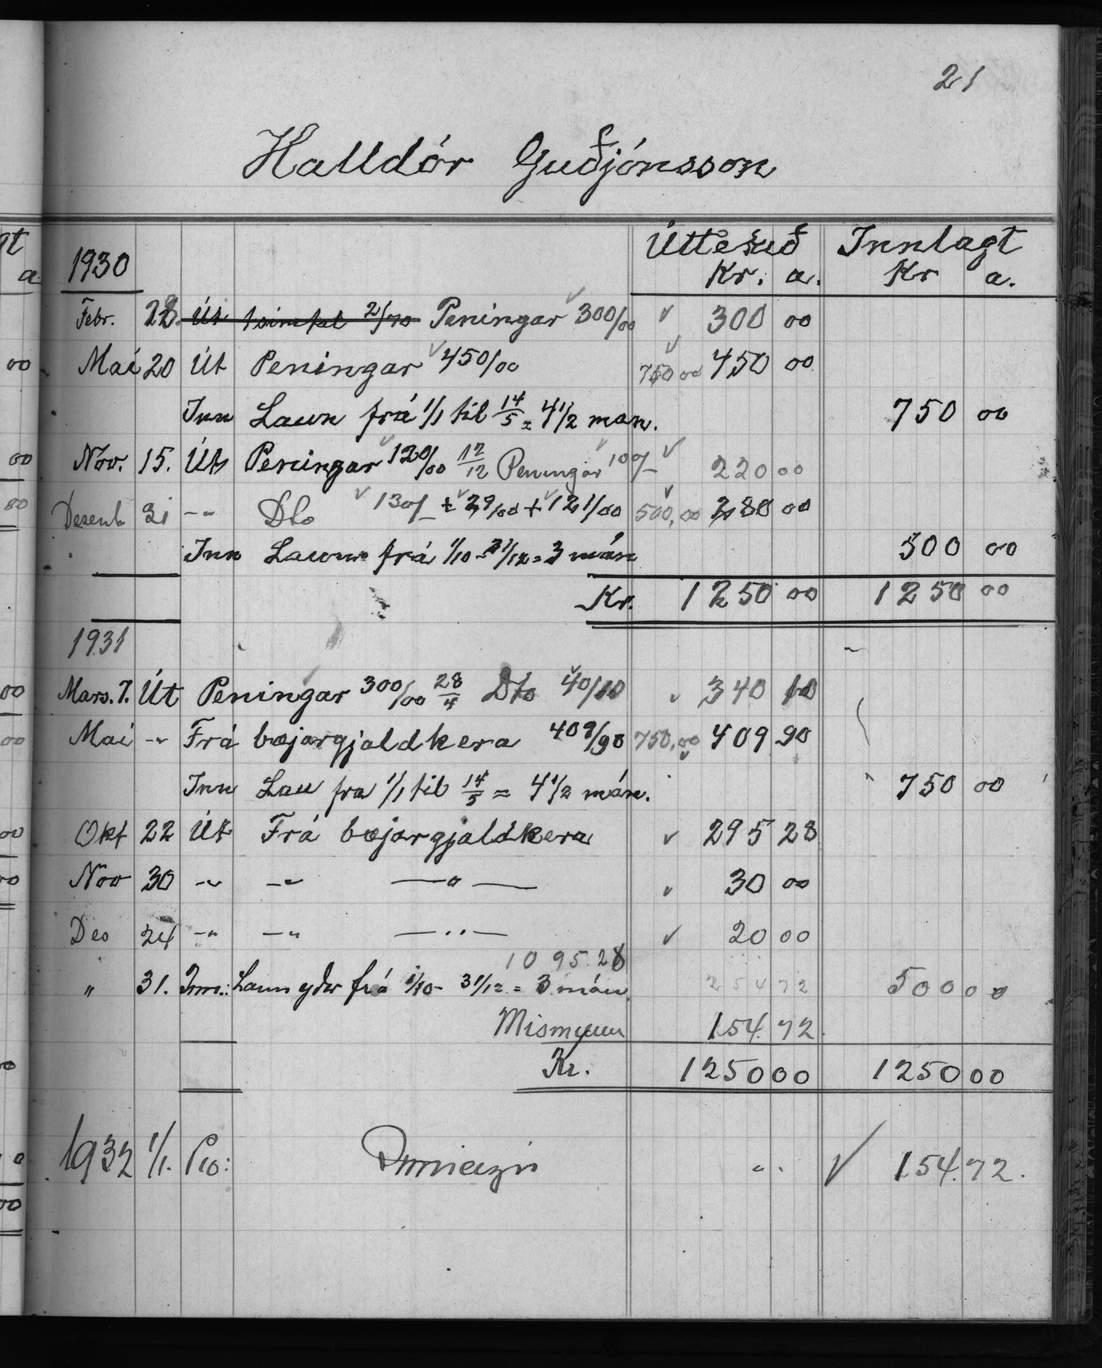 21
Halldór Guðjónsson
1930 Úttekið Innlagt
Kr. a. Kr a.
Febr. 28. Út Peningar 300/00 300 00
Mai 20 Út Peningar 450/00 750 00 450 00
Inn Laun frá 1/1 til 14/5 = 4 1/2 man. 750 00
Nov. 15. Út Peningar 120/00 12/12 Peningar 100/- 220 00
Desemb 31 -"- Dto 130/- + 29/00 + 121/00 500,00 280 00
Inn Laun frá 1/10 - 31/12 = 3 mán 500 00
Kr. 1250 00 1250 00
1931
Mars. 7. Út Peningar 300/00 28/4 Dto 40/10 340 10
Mai -"- Frá bæjargjaldkera 409/90 750,00 409 90
Inn Lau fra 1/1 til 14/5 = 4 1/2 mán. 750 00
Okt 22 Út Frá bæjargjaldkera 295 28
Nov 30 -"- -"- —"— 30 00
Des 24 -"- -"- —"— 20 00
1095.28
" 31. Inn: Laun yðar frá 1/10 - 31/12 = 3 mán. 254 72 500 00
Mismunur 154.72.
Kr. 1250 00 1250 00
1932 1/1. Pr: Inneign ". 154.72.